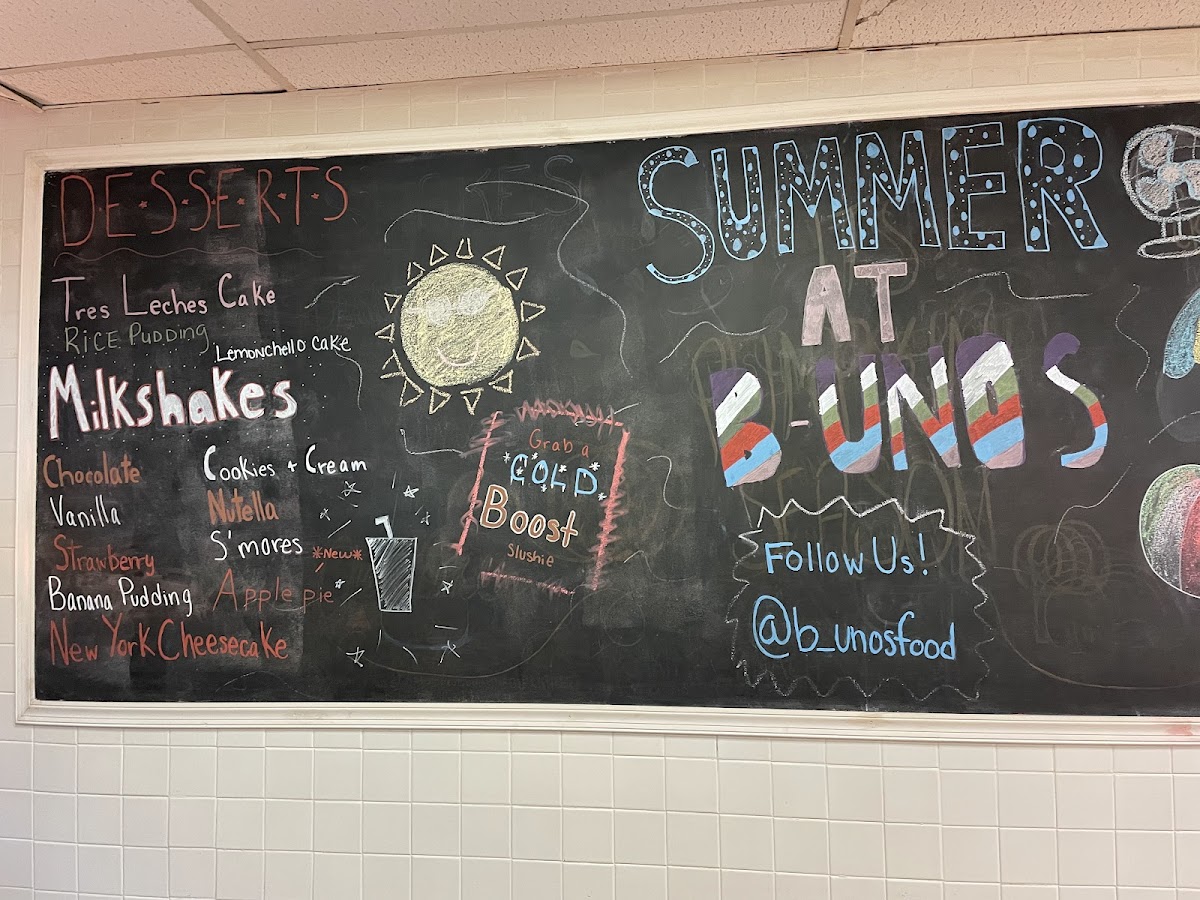 DESSERTS
Tres Leches Cake
Rice Pudding
Lemonchello Cake
Milkshakes
Chocolate
Vanilla
Strawberry
Banana Pudding
New York Cheesecake
Cookies + Cream
Nutella
S'mores
*New*
Apple pie
Grab a
COLD
Boost
Slushie
SUMMER
AT
B-UNOS
Follow Us!
@b_unosfood